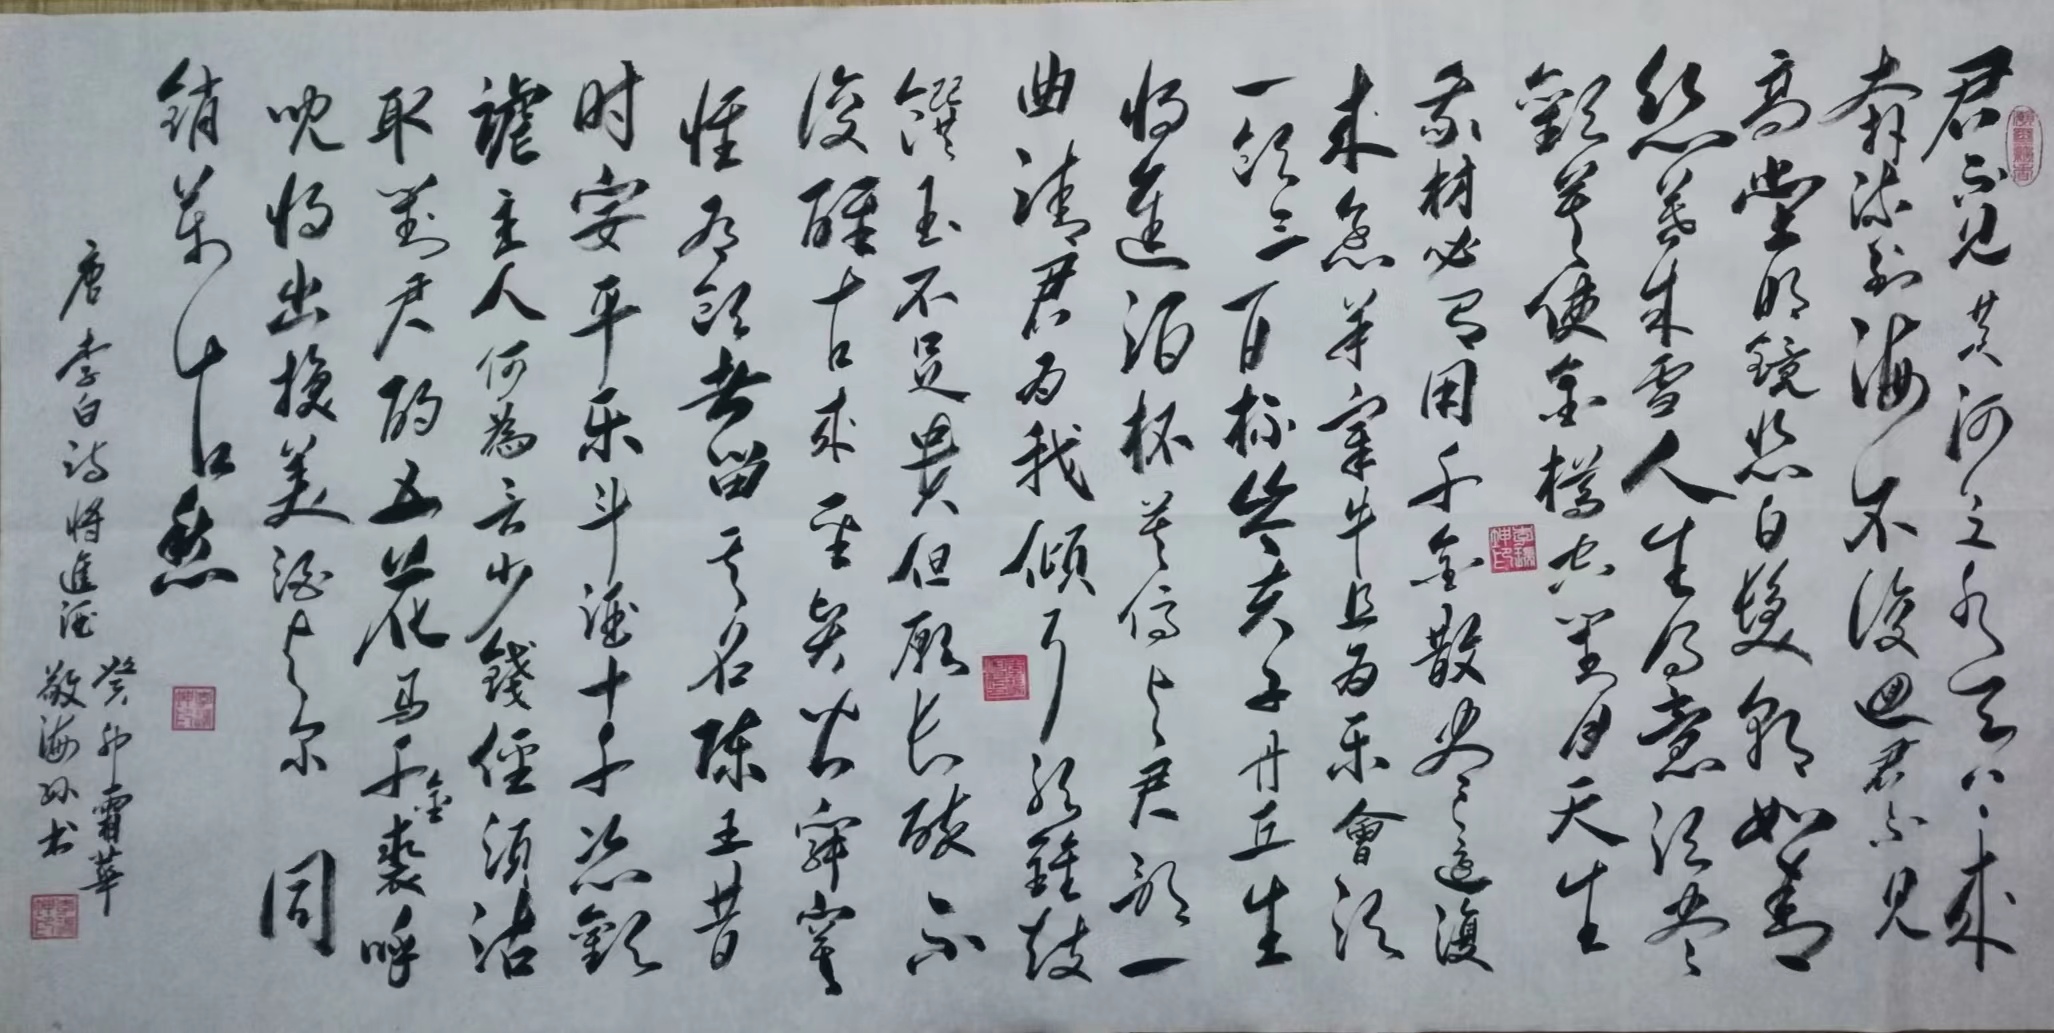 君不见黄河之水天上来
奔流到海不復迴君不见
高堂明鏡悲白髮朝如青
丝暮成雪人生得意须尽
歡莫使金樽空對月天生
我材必有用千金散尽還復
来烹羊宰牛且为乐會须
一饮三百杯岑夫子丹丘生
将進酒杯莫停与君歌一
曲请君为我倾耳听鐘鼓
馔玉不足贵但願长醉不
復醒古来圣贤皆寂寞
惟有饮者留其名陈王昔
时宴平乐斗酒十千恣歡
谑主人何為言少錢径须沽
取對君酌五花马千金裘呼
児将出换美酒与尔同
銷萬古愁
唐李白诗将進酒
癸卯霜華
敬海书